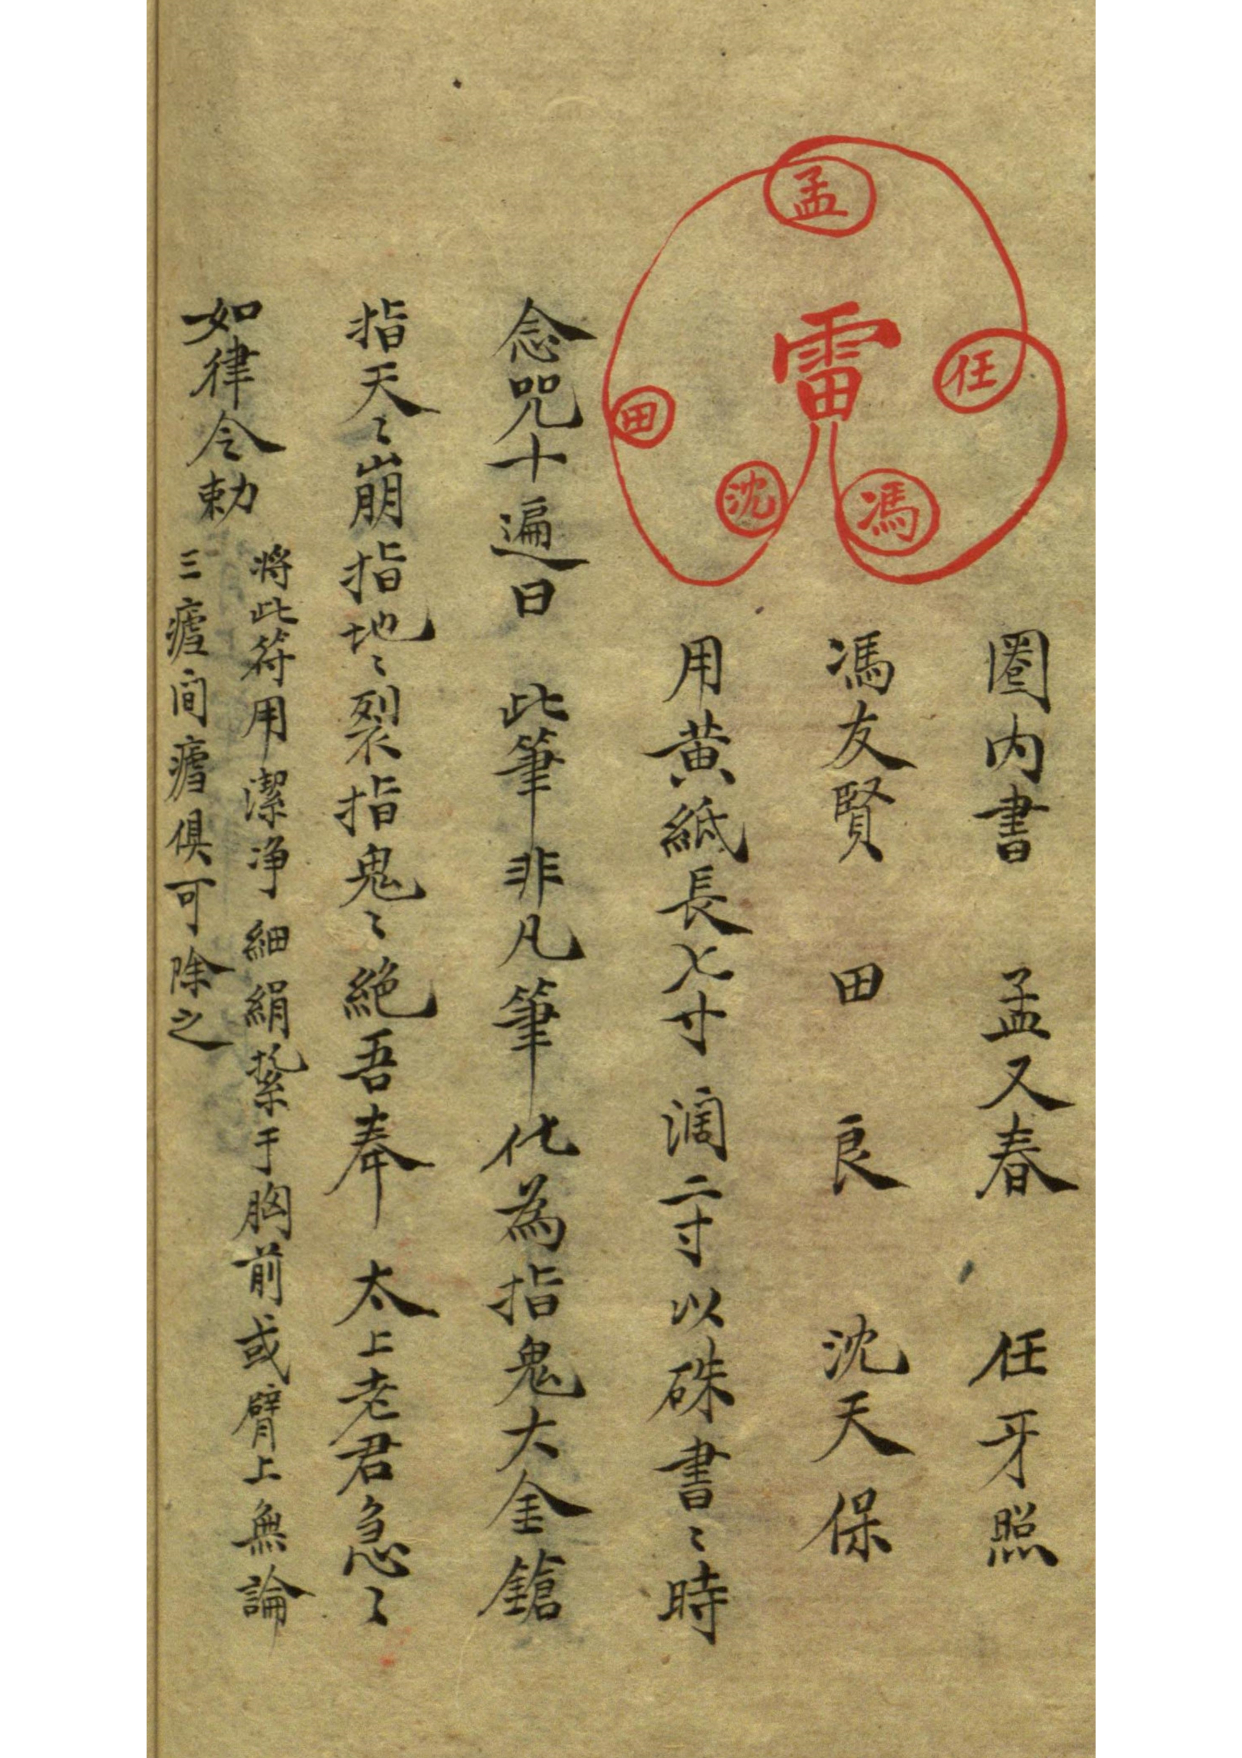 孟
任
雷
田
沈
馮
圈内書　孟又春　任牙照
馮友賢　田良　沈天保
用黄紙長七寸濶二寸以硃書〻時
念咒十遍曰　此筆非凡筆化為指鬼大金鎗
指天〻崩指地〻裂指鬼〻絶吾奉　太上老君急〻
如律令勅
將此符用潔净細絹紮于胸前或臂上無論
三瘧间瘧俱可除之